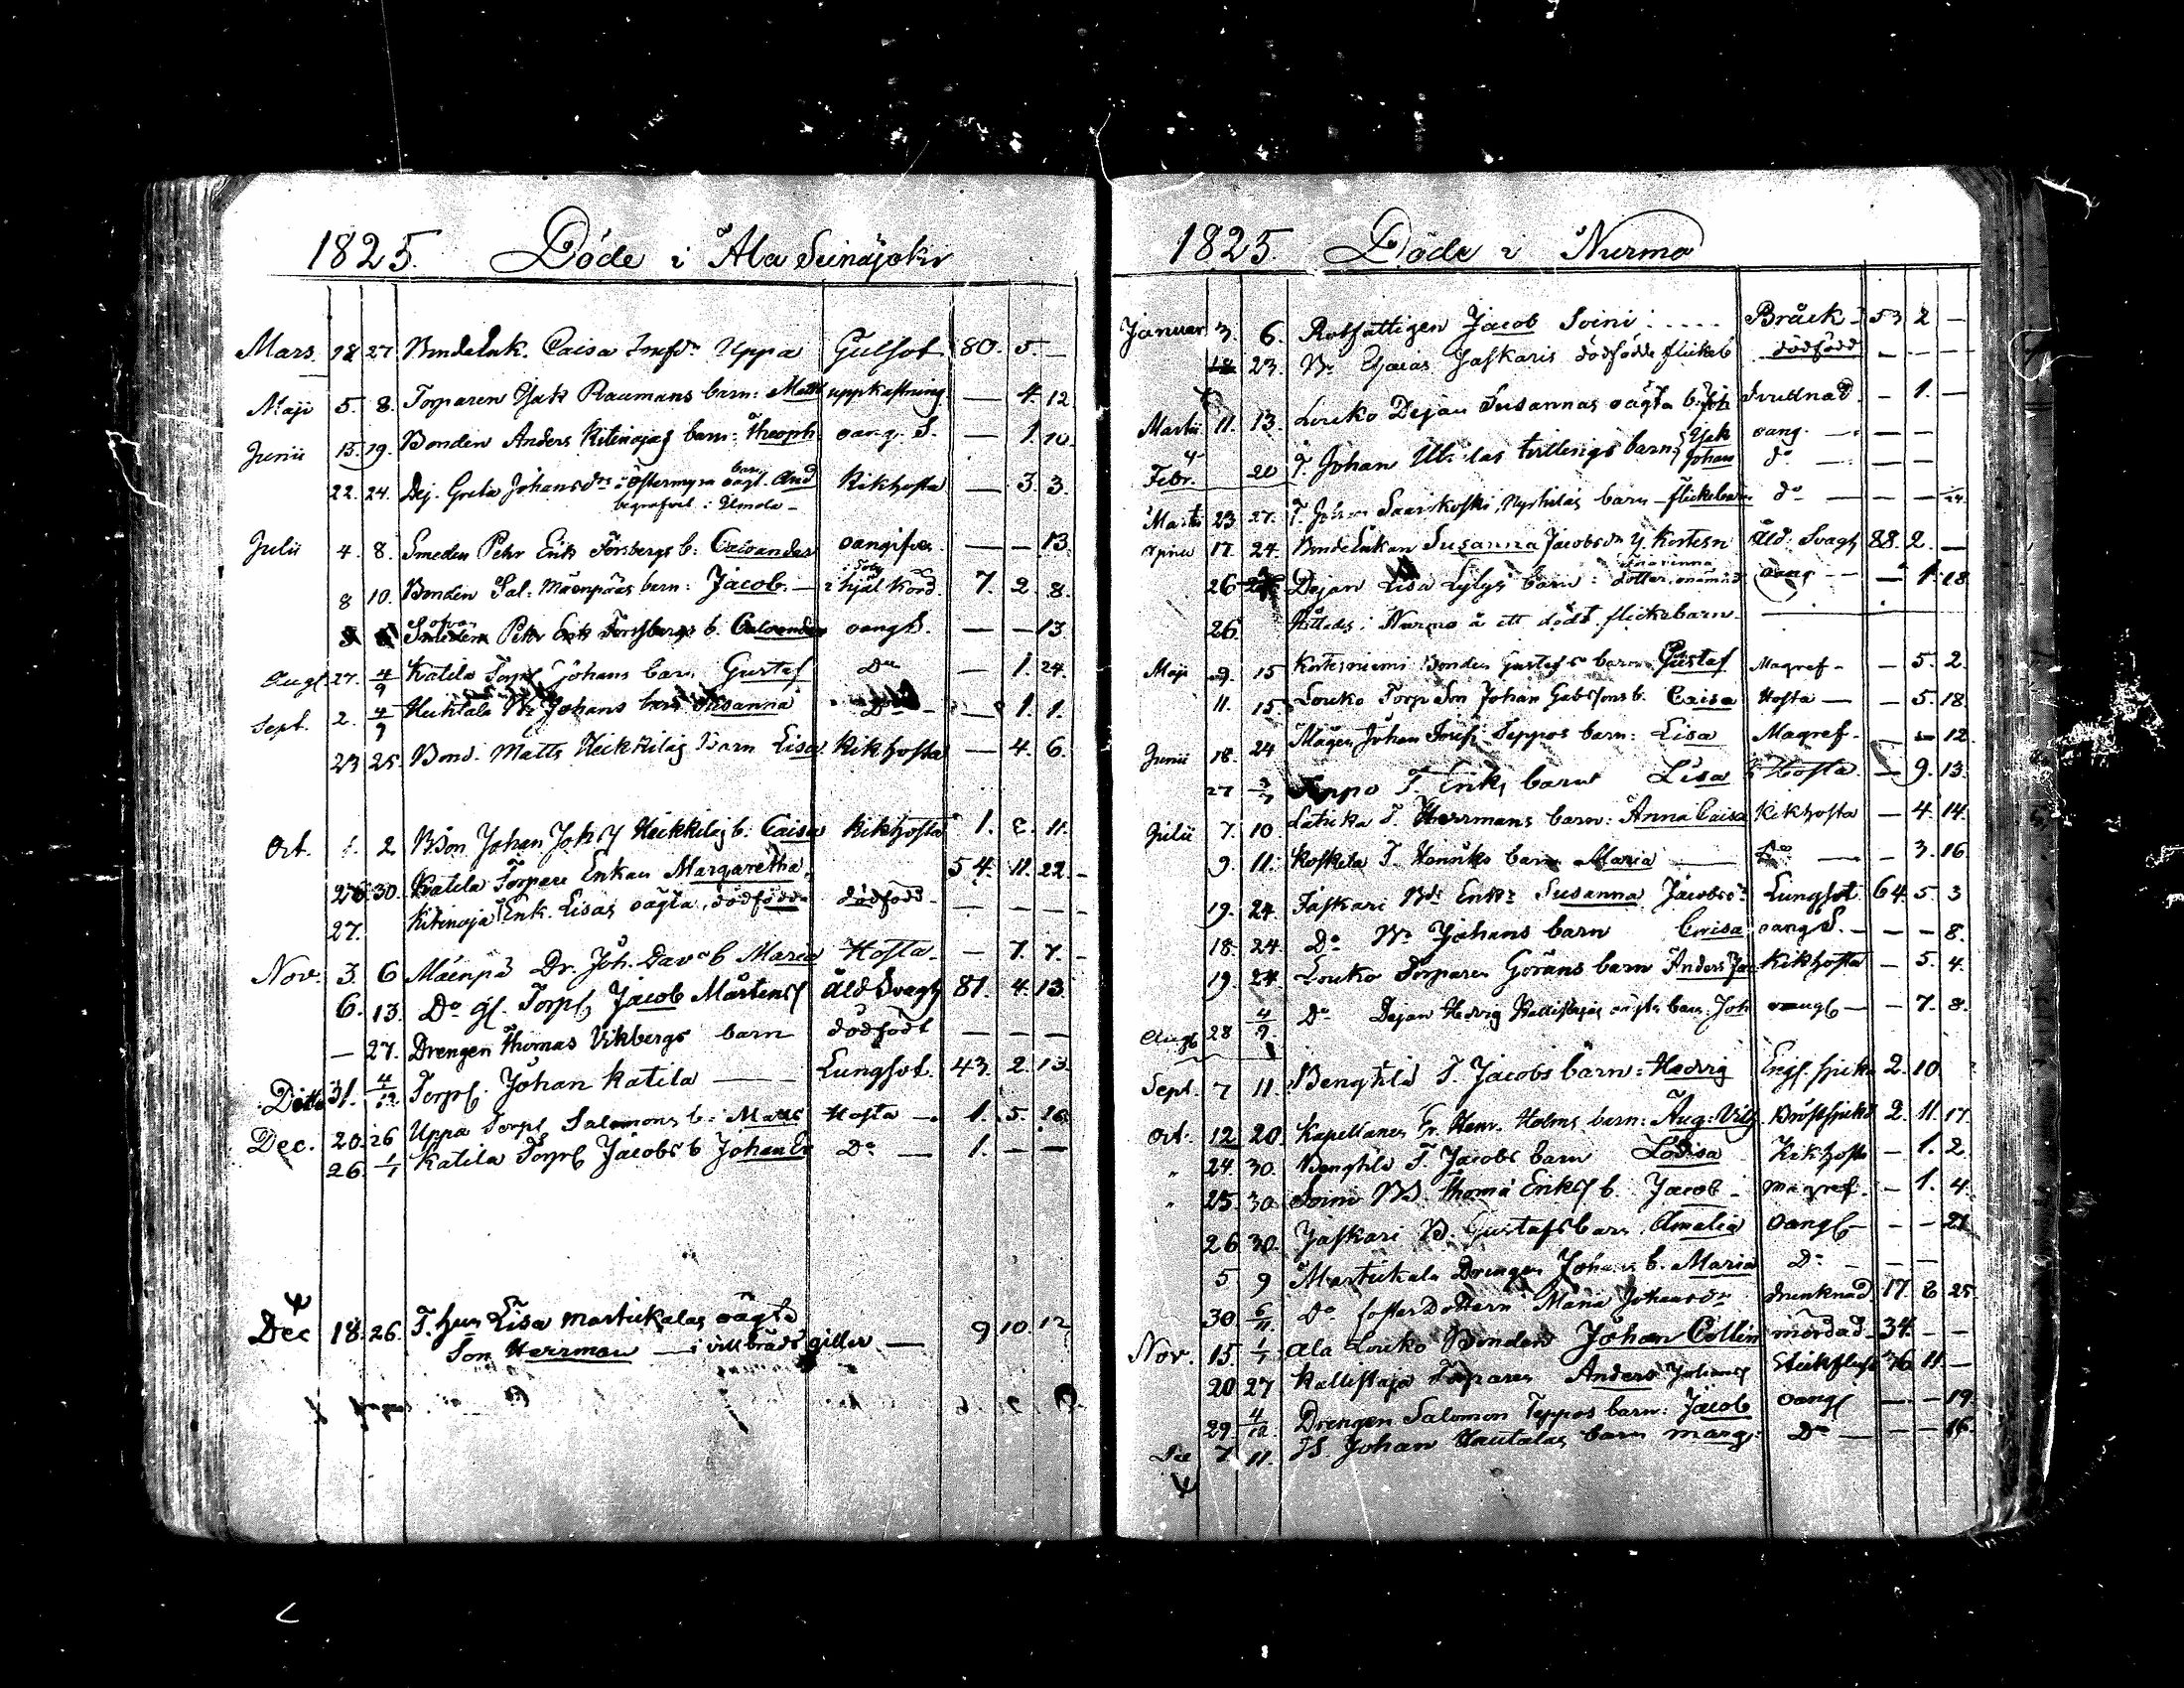 1825. Döde i Ala Seinäjoki
Mars. 18 27 BondeEnk. Caisa Uppa Gulsot 80. 5. —
Maji 5. 8. Torparen Isak Raumans barn: Matts uppkastning — 4. 12
Junii 15. 19. Bonden Anders Kitinojas barn: Theoph. oang. S. — 1. 10
22. 24. Dej. Greta Johansdr i Östermyra oägt. barn And Kikhosta — 3. 3.
begrafvet i Ilmola —
Julii 4. 8. Smeden Pehr Eriks Forsbergs b: Calvander oangifven — — 13.
8 10. Bonden Sal: Mäenpääs barn: Jacob — ihjäl körd. 7. 2. 8.
Smeden Pehr Erik Forsbergs b. Calvander oang S. — — 13
Aug. 27. 4/9 Katila Torp Johans barn Gustaf Do — 1. 24.
Sept. 2. 4/9 Huhtala Johans barn Susanna Do — 1. 1.
23 25. Bond. Matts Heikkilas Barn Lisa Kikhosta — 4. 6.
Oct. 1. 2 Bon Johan Heikkilas b: Caisa Kikhosta 1. 2. 11.
26. 30. Katila Torpare Enkan Margaretha 54. 11. 22.
27. Kitinoja Enk. Lisas oägta, dödfödda dödfödd — — —
Nov. 3. 6 Mäenpä Dr. Joh. Dav. b Maria Hosta — 7. 7.
6. 13. Do gl. Torp Jacob Mårtens Åld Svagh 81. 4. 13
— 27. Drengen Thomas Vikbergs barn dödfödt — — —
Ditto 31. 4/12 Torp. Johan Katila — Lungsot. 43. 2. 13.
Dec. 20. 26 Uppa Torp Salomons b: Matts Hosta — 1. 5. 26
26. 1/1 Katila Torp Jacobs b Johan Er Do — 1. — —
Dec 18. 26. T. hjon Lisa Martickalas oägta
Son Herrman — i villbråds giller — 9 10. 12
1825. Döde i Nurmo
Januar 3. 6. Rotfattigen Jacob Soini . . . . Bråck — 53 2 —
18 23. Esaias Jaskaris dödfödde flickeb dödfödd — — —
Martii 11. 13. Louko Dejan Susannas oägta b. Svullnad — 1. —
Febr. 20 T. Johan tvillings barn Isak oang. — — —
Johan do — — —
Martii 23 27. T. Johan Saarikoski, Nyrhilas barn — flickebarn do — — 24.
Aprill 17. 24. BondeEnkan Susanna Jacobsdr Y. Kortesn Åld. Svagh 88. 2. —
26 Dejan Lisa Lylys barn: dotter onämnd oang — — 1. 18
26. Hittades i Nurmo å ett dödt flickebarn —
Maji 9. 15 Kortesniemi Bonden Gustafs barn Gustaf Magref — — 5. 2.
11. 15 Louko Torp Son Johan b. Caisa Hosta — — 5. 18.
Junii 18. 24 Mågen Johan Teppos barn: Lisa Magref — — — 12
27 3/7 Teppo T. Eriks barn Lisa Hosta. — 9. 13.
Julii 7. 10 T. Herrmans barn: Anna Caisa Kikhosta — 4. 14.
9. 11. Koskela T. Henriks barn Maria — Do — — 3. 16
19. 24. Jaskari Susanna Jacobsdr Lungsot 64. 5. 3
18. 24 Do Johans barn Caisa oang S. — — — 8.
19. 24 Louko Torparen Görans barn Anders Kikhosta — 5. 4.
Aug 28 4/9. Do Dejan Hedvig Kallistajas oägta barn: Joh oang — — 7. 8.
Sept. 7 11. Benghtila T. Jacobs barn: Hedvig Engl. sjuka 2. 10
Oct. 12 20. Kapellanen Hr. Henr. Holms barn: Aug: Vilh Bröstsjuka 2. 11. 17.
24. 30. Benghtila T. Jacobs barn Lovisa Kikhosta — 1. 2.
25. 30 Soini Thoma b. Jacob — Magref. — 1. 4.
26 30. Jaskari B. Gustafs barn Amalia oang — — — 21
5 9 Martickala Drengen Johans b. Maria Do — — —
30. 6/11. Do fosterDottern Maria Johansdr drunknad. 17. 6 25
Nov. 15. Ala Louko Bonden Johan Collin mördad. 34. — —
20 27 Kallistaja Torparen Anders 36 11 —
29 4/12. Drengen Salomon Teppos barn: Jacob oang — — 19
Dec 7. 11. Johan Hautalas barn Marg: Do — — — 16.